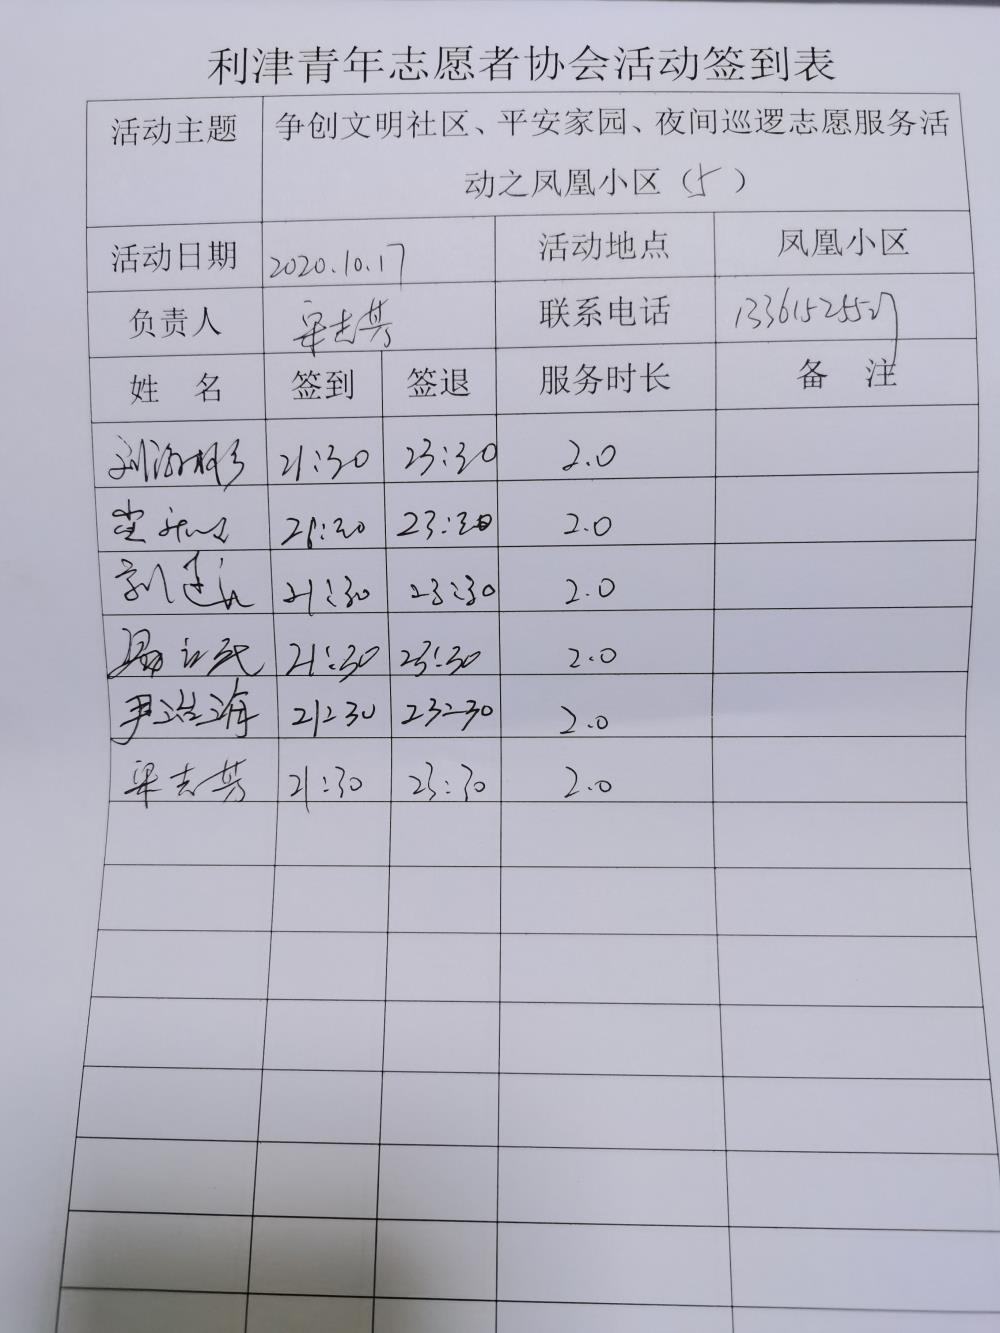 利津青年志愿者协会活动签到表
活动主题 争创文明社区、平安家园、夜间巡逻志愿服务活
动之凤凰小区（5）
活动日期 2020.10.17 活动地点 凤凰小区
负责人 梁志芳 联系电话
姓 名 签到 签退 服务时长 备 注
21:30 23:30 2.0
21:30 23:30 2.0
21:30 23:30 2.0
21:30 23:30 2.0
尹浩海 21:30 23:30 2.0
梁志芳 21:30 23:30 2.0